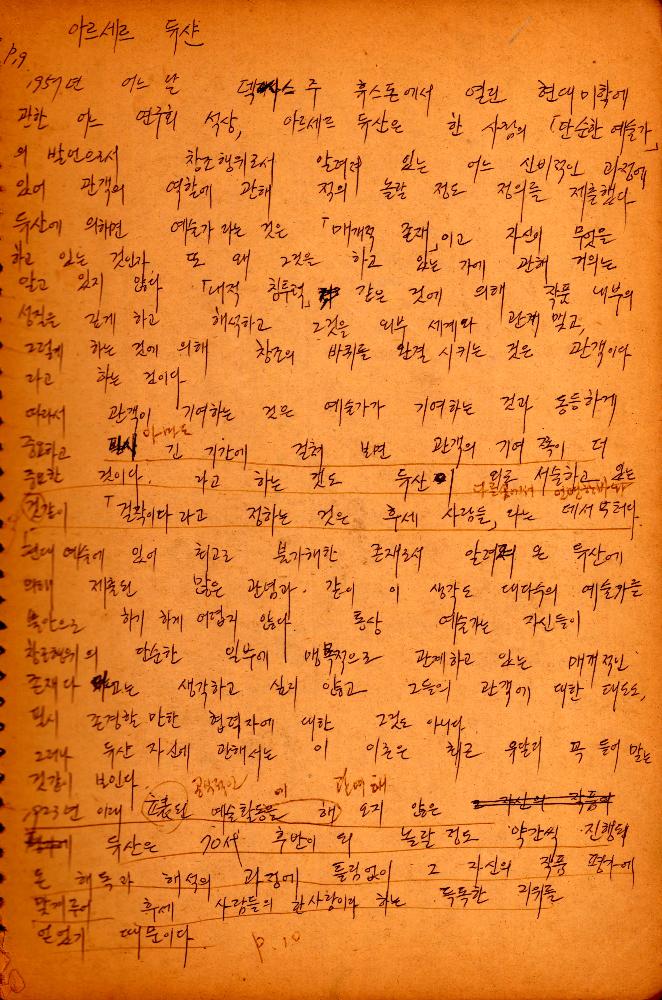 아르세르 듀샨
P.9
1957년 어느 날 주 휴스톤에서 열린 현대미학에
관한 어느 연구회 석상, 아르세르 듀산은 한 사람의 「단순한 예술가」
의 발언으로서 창조행위로서 알려져 있는 어느 신비적인 과정에
있어 관객의 역할에 관해 적의 놀랄 정도 정의를 제출했다
듀산에 의하면 예술가라는 것은 「매개적 존재」이고 자신이 무엇을
하고 있는 것인가 또 왜 그것을 하고 있는가에 관해 거의는
알고 있지 않다 「내적 침투력」 같은 것에 의해 작품 내부의
성질을 깊게 하고 해석하고 그것을 외부 세계와 관계 맺고,
그렇게 하는 것에 의해 창조의 바퀴를 완결시키는 것은 관객이다
라고 하는 것이다
따라서 관객이 기여하는 것은 예술가가 기여하는 것과 동등하게
중요하고 아마도 긴 기간에 걸쳐 보면 관객의 기여 쪽이 더
중요한 것이다. 라고 하는 것도 듀산이 서술하고 있는
것같이 「걸작이다라고 정하는 것은 후세 사람들」라는
현대예술에 있어 최고로 불가해한 존재로서 알려져 온 듀산에
의해 제출된 많은 관념과 같이 이 생각도 대다수의 예술가를
불안으로 하기 하게 어렵지 않다. 통상 예술가는 자신들이
창조행위의 단순한 일부에 맹목적으로 관계하고 있는 매개적인
존재다 라고는 생각하고 싶지 않고 그들의 관객에 대한 태도도,
필시 존경할만한 협력자에 대한 그것도 아니다
그러나 듀산 자신에 관해서는 이 이론은 최근 유달리 꼭 들어 맞는
것같이 보인다
1923년 이래 예술활동을 해 오지 않은
듀산은 70세 후반이 되 놀랄 정도 약간씩 진행되
는 해독과 해석의 과정에 틀림없이 그 자신의 작품 평가에
맞게루어 후세 사람들의 한사람이다 하는 독특한 지위를
얻었기 때문이다
P.10